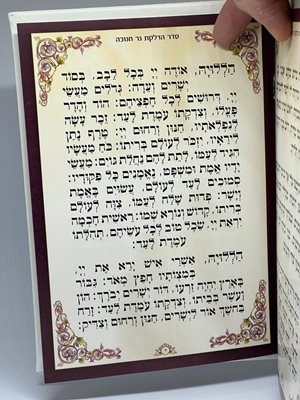 סדר הדלקת נר חנוכה
הַלְלוּיָהּ, אוֹדֶה יְיָ בְּכָל לֵבָב, בְּסוֹד
יְשָׁרִים וְעֵדָה: גְּדֹלִים מַעֲשֵׂי
יְיָ, דְּרוּשִׁים לְכָל חֶפְצֵיהֶם: הוֹד וְהָדָר
פָּעֳלוֹ, וְצִדְקָתוֹ עֹמֶדֶת לָעַד: זֵכֶר עָשָׂה
לְנִפְלְאֹתָיו, חַנּוּן וְרַחוּם יְיָ: טֶרֶף נָתַן
לִירֵאָיו, יִזְכֹּר לְעוֹלָם בְּרִיתוֹ: כֹּחַ מַעֲשָׂיו
הִגִּיד לְעַמּוֹ, לָתֵת לָהֶם נַחֲלַת גּוֹיִם: מַעֲשֵׂי
יָדָיו אֱמֶת וּמִשְׁפָּט, נֶאֱמָנִים כָּל פִּקּוּדָיו:
סְמוּכִים לָעַד לְעוֹלָם, עֲשׂוּיִם בֶּאֱמֶת
וְיָשָׁר: פְּדוּת שָׁלַח לְעַמּוֹ, צִוָּה לְעוֹלָם
בְּרִיתוֹ, קָדוֹשׁ וְנוֹרָא שְׁמוֹ: רֵאשִׁית חָכְמָה
יִרְאַת יְיָ, שֵׂכֶל טוֹב לְכָל עֹשֵׂיהֶם, תְּהִלָּתוֹ
עֹמֶדֶת לָעַד:
הַלְלוּיָהּ, אַשְׁרֵי אִישׁ יָרֵא אֶת יְיָ,
בְּמִצְוֹתָיו חָפֵץ מְאֹד: גִּבּוֹר
בָּאָרֶץ יִהְיֶה זַרְעוֹ, דּוֹר יְשָׁרִים יְבֹרָךְ: הוֹן
וָעֹשֶׁר בְּבֵיתוֹ, וְצִדְקָתוֹ עֹמֶדֶת לָעַד: זָרַח
בַּחֹשֶׁךְ אוֹר לַיְשָׁרִים, חַנּוּן וְרַחוּם וְצַדִּיק: